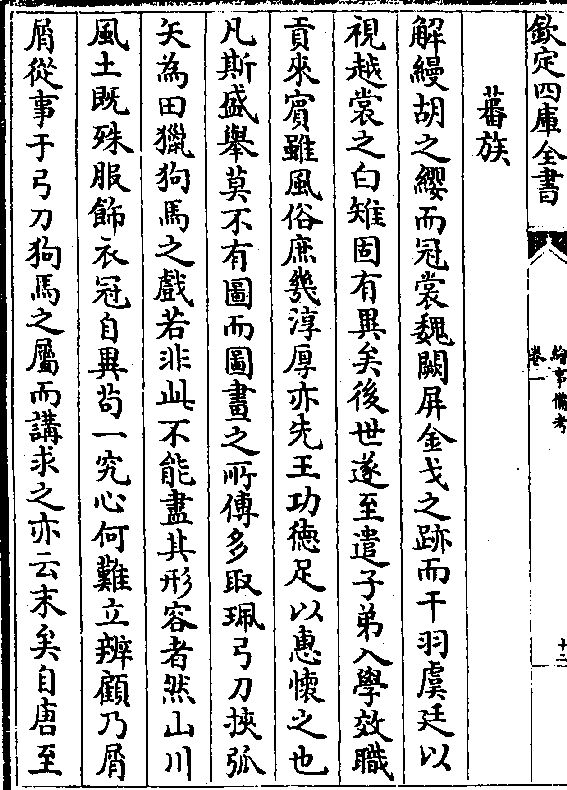 欽定四庫全書
繪事備考
卷一
十二
蕃族
解縵胡之纓而冠裳魏闕屏金戈之跡而干羽虞廷以
視越裳之白雉固有異矣後世遂至遣子弟入學效職
貢來賓雖風俗庶幾淳厚亦先王功徳足以惠懷之也
凡斯盛舉莫不有圖而圖畫之所傳多取珮弓刀挾弧
矢為田獵狗馬之戲若非此不能盡其形容者然山川
風土既殊服飾衣冠自異茍一究心何難立辨顧乃屑
屑從事于弓刀狗馬之屬而講求之亦云末矣自唐至